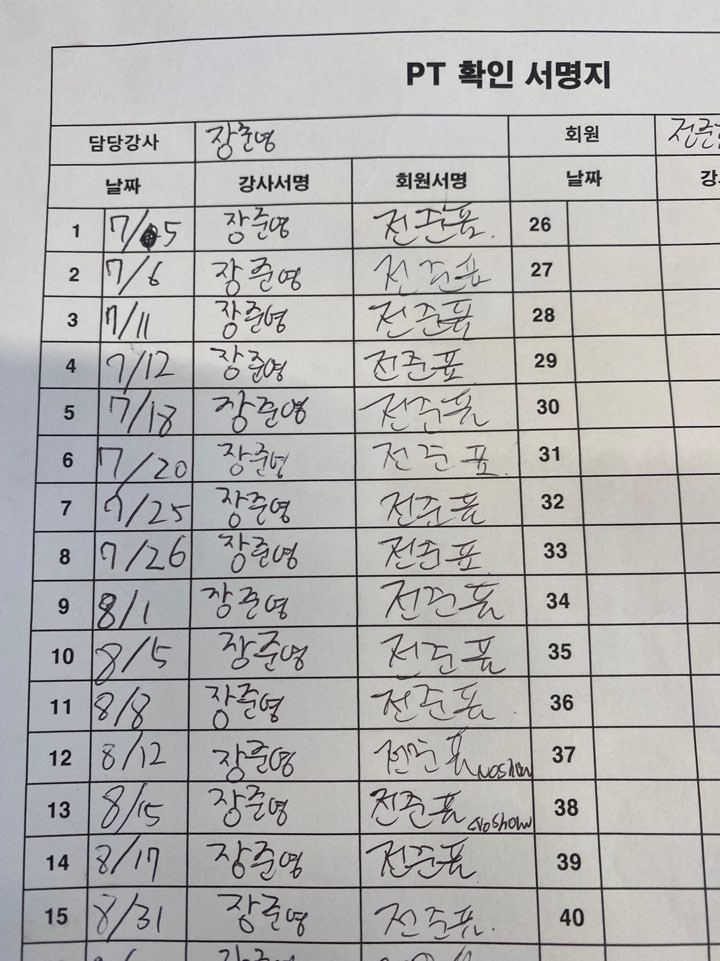 PT 확인 서명지
담당강사 장준영 회원
날짜 강사서명 회원서명 날짜
1 7/5 장준영 전준표. 26
2 7/6 장준영 전준표 27
3 7/11 장준영 전준표 28
4 7/12 장준영 전준표 29
5 7/18 장준영 전준표 30
6 7/20 장준영 전준표. 31
7 7/25 장준영 전준표 32
8 7/26 장준영 전준표 33
9 8/1 장준영 전준표 34
10 8/5 장준영 전준표 35
11 8/8 장준영 전준표. 36
12 8/12 장준영 전준표 NoShow 37
13 8/15 장준영 전준표 NoShow 38
14 8/17 장준영 전준표 39
15 8/31 장준영 전준표. 40